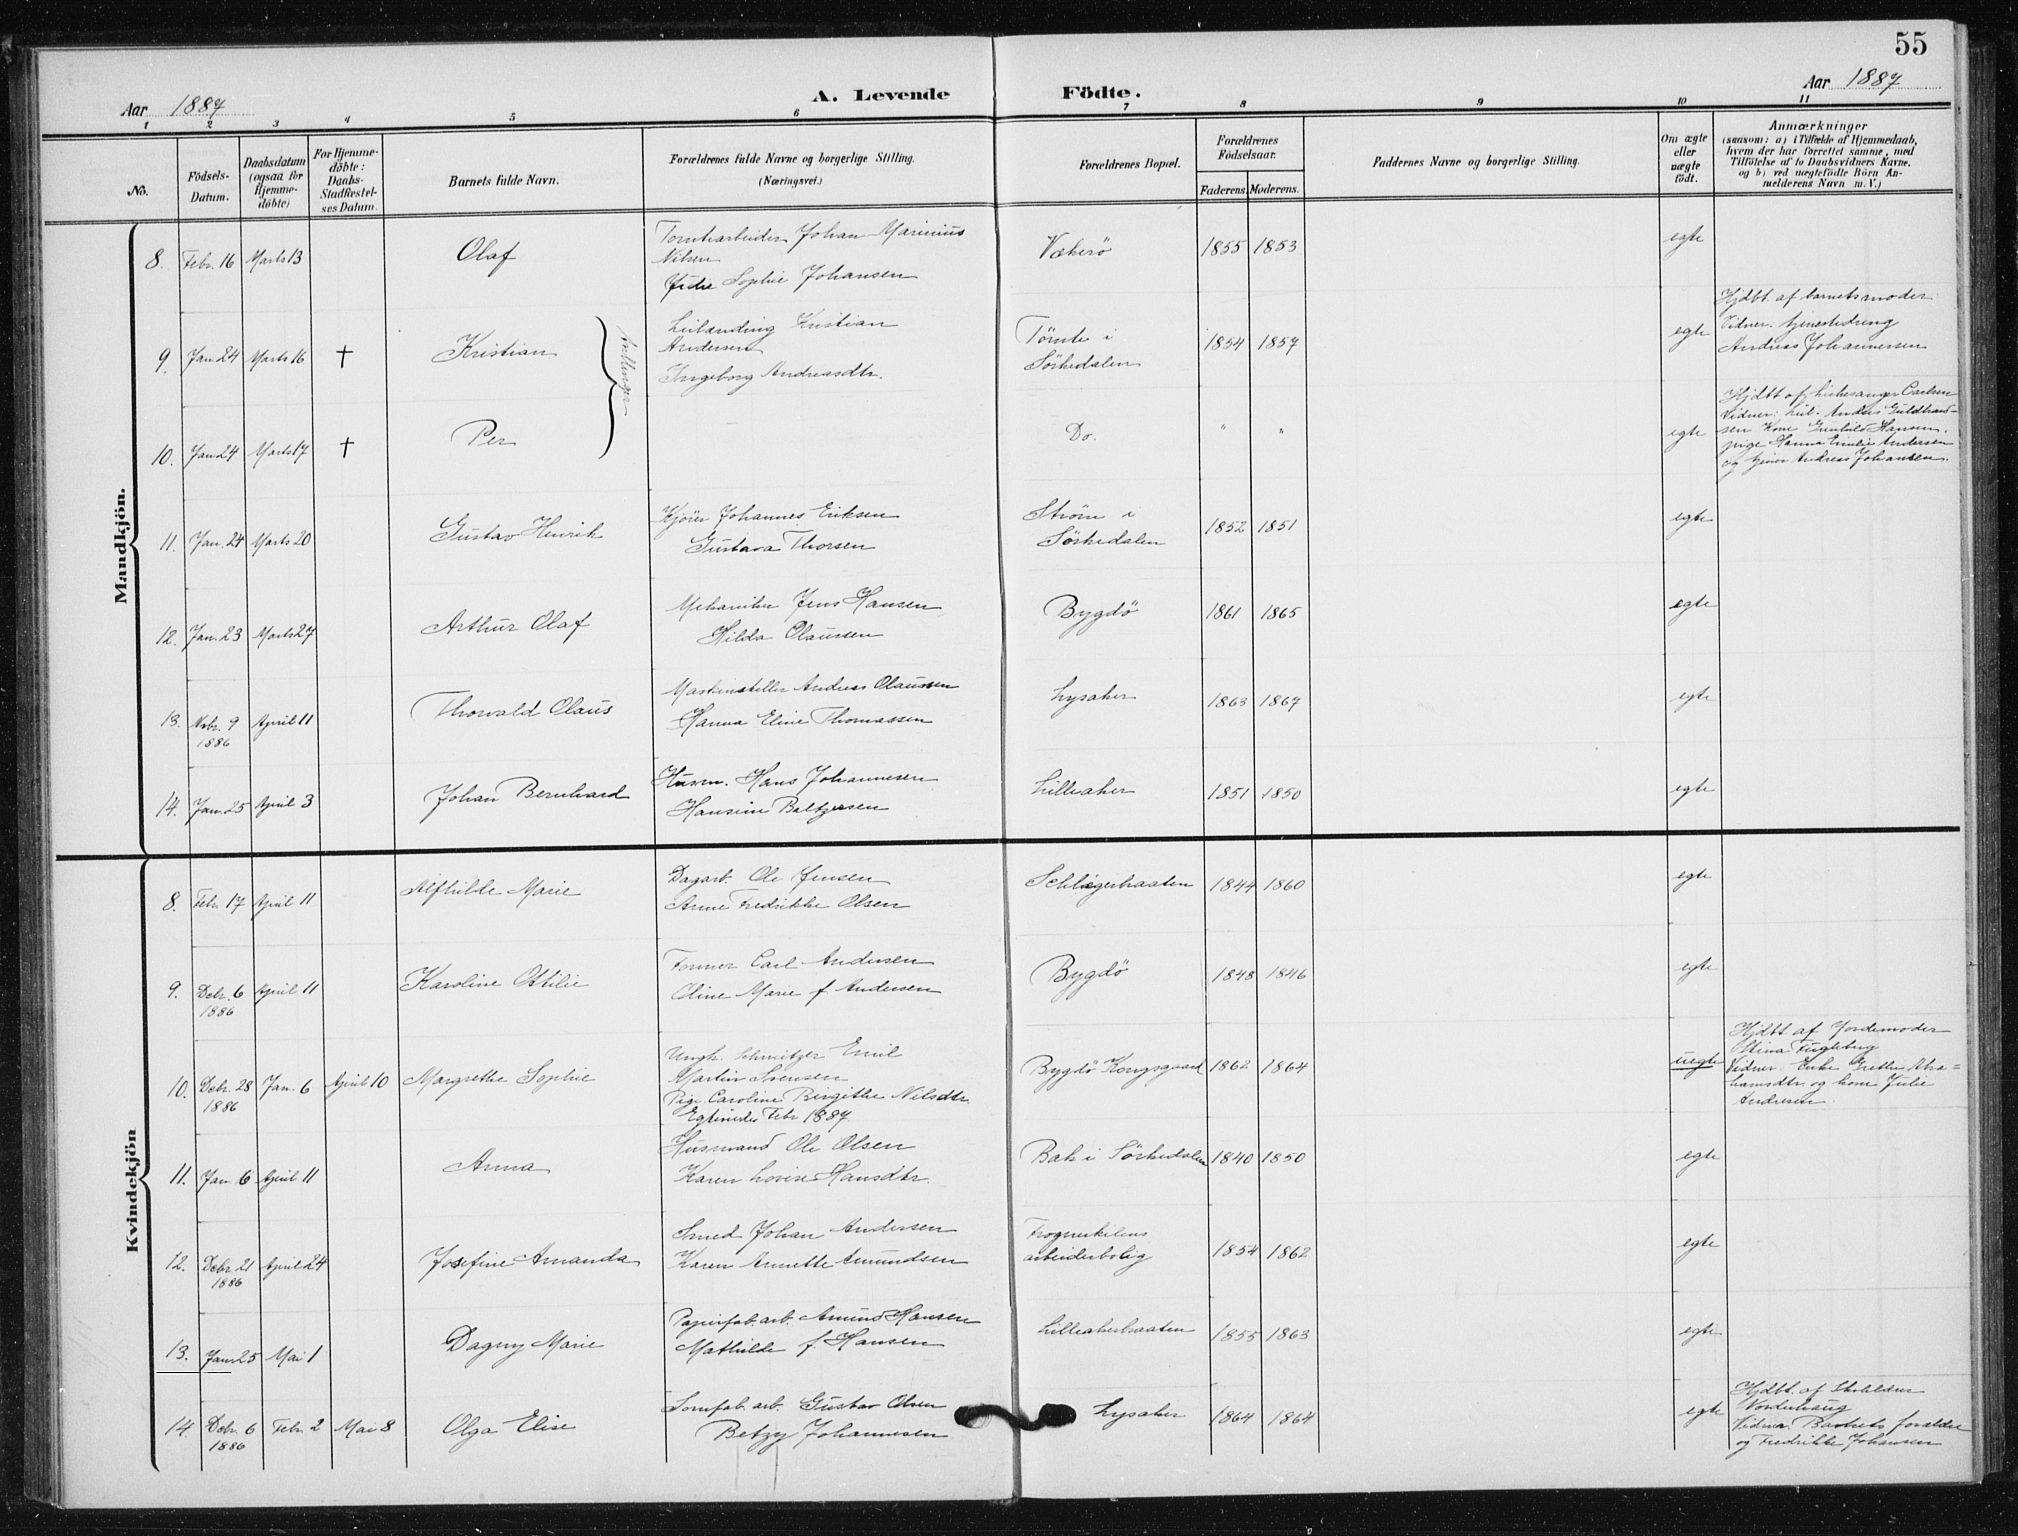 55
Aar 1887
A. Levende Födte.
Aar 1887
1 2 3 4 5 6 7 8 9 10 11
No.
Födsels-
Datum.
Daabsdatum
(ogsaa for
Hjemme-
döbte)
For Hjemme-
döbte:
Daabs-
Stadfæstel-
ses Datum.
Barnets fulde Navn.
Forældrenes fulde Navne og borgerlige Stilling.
(Næringsvei.)
Forældrenes Bopæl.
Forældrenes
Födselsaar.
Faderens. Moderens.
Faddernes Navne og borgerlige Stilling.
Om ægte
eller
uægte
födt.
Anmærkninger
(saasom: a) i Tilfælde af Hjemmedaab,
hvem der har forrettet samme, med
Tilföielse af to Daabsvidners Navne.
og b) ved uægtefödte Börn An-
melderens Navn m. V.)
Mandkjön.
8. Febr. 16 Marts 13 Olaf
Tomtearbeider Johan Marinius
Nilsen
Sophie Johansen
Vækerö 1855 1853 egte
9. Jan. 24 Marts 16 † Kristian
Tvillinger
Leilænding Kristian
Andersen
Ingeborg Andreasdtr.
Tömte i
Sörkedalen
1854 1857 egte
Hjdbt. af barnets moder
Vidner. tjenestedreng
Andreas Johannersen
10. Jan. 24 Marts 17 † Per
Do. " " egte
Hjdbt af kirkesanger Carlsen
Vidner: Leil. Anders Guldbrand-
sen Kone Gunhild Hansen,
pige Hanna Emilie Andersen
og tjener Andreas Johansen.
11. Jan. 24 Marts 20 Gustav Henrik
Kjörer Johannes Eriksen
Gustava Thorsen
Ström i
Sörkedalen
1852 1851 egte
12. Jan. 23 Marts 27 Arthur Olaf
Mekaniker Jens Hansen
Hilda Olaussen
Bygdö 1861 1865 egte
13. Novbr. 9 April 11 Thorvald Olaus
1886
Maskinsteller Andreas Olaussen
Hanna Eline Thomassen
Lysaker 1863 1867 egte
14. Jan. 25 April 3 Johan Bernhard
Husm. Hans Johannesen
Hansine Baltzersen
Lilleaker 1851 1850 egte
Kvindekjön
8. Febr. 17 April 11 Alfhilde Marie
Dagarb. Ole Jensen
Anne Fredrikke Olsen
Schlægerbraaten 1844 1860 egte
9. Debr. 6 April 11 Karoline Ottilie
1886
Former Carl Andersen
Oline Marie f. Andersen
Bygdö 1848 1846 egte
10. Debr. 28 Jan. 6 April 10 Margrethe Sophie
1886
Ungk. Schweitzer Emil
Martin Svensen
Pige Caroline Birgithe Nilsdtr.
Egteviedes Febr 1887.
Bygdö Kongsgaard 1862 1864 uegte
Hjdbt. af Jordemoder
Stina Fugleberg
Vidner. Enke Grethe Abra-
hamsdtr. og kone Julie
Andresen.
11. Jan. 6 April 11 Anna
Husmand Ole Olsen
Karen Lovise Hansdtr.
Bak i Sörkedalen 1840 1850 egte
12. Debr. 21 April 24 Josefine Amanda
1886
Smed Johan Andersen
Karen Annette Amundsen
Frognerkilens
arbeiderbolig
1854 1862 egte
13. Jan. 25 Mai 1 Dagny Marie
Papirfab. arb. Amund Hansen
Mathilde f. Hansen
Lilleakerbraaten 1855 1863 egte
14. Debr. 6 Febr. 2 Mai 8 Olga Elise
1886
Sömfab. arb. Gustav Olsen
Betzy Johannesen
Lysaker 1864 1864 egte
Hjdbt. af Skolelærer
Norderhaug
Vidner. Barnets forældre
og Fredrikke Johansen